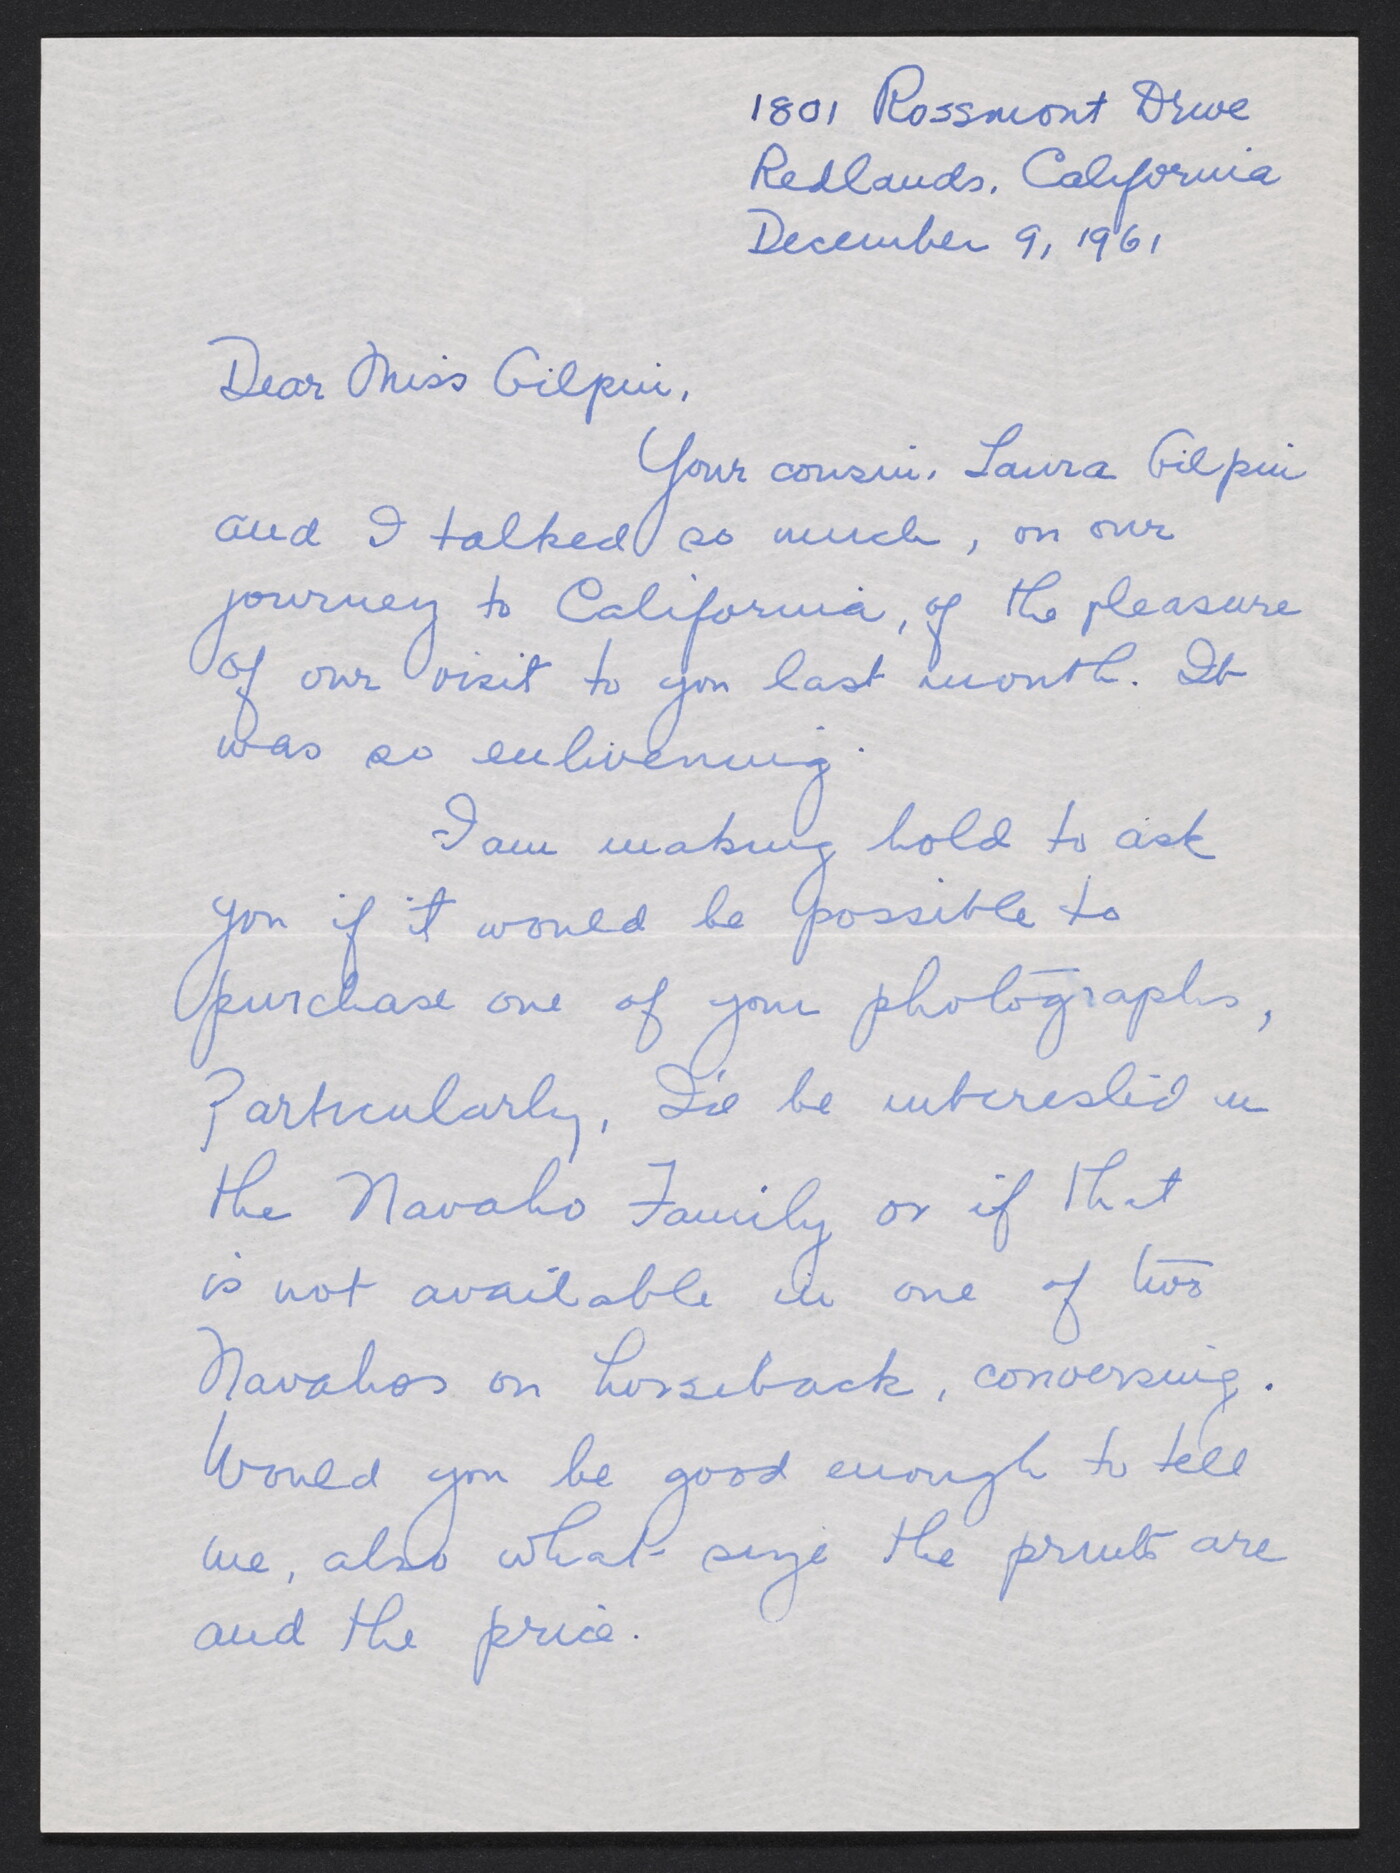 1801 Rossmont Drive
Redlands, California
December 9, 1961
Dear Miss Gilpin,
Your cousin, Laura Gilpin
and I talked so much, on our
journey to California, of the pleasure
of our visit to you last month. It
was so enlivening.
I am making bold to ask
you if it would be possible to
purchase one of your photographs,
Particularly, I'd be interested in
the Navaho Family or if that
is not available in one of two
Navahos on horseback, conversing.
Would you be good enough to tell
me, also what size the prints are
and the price.